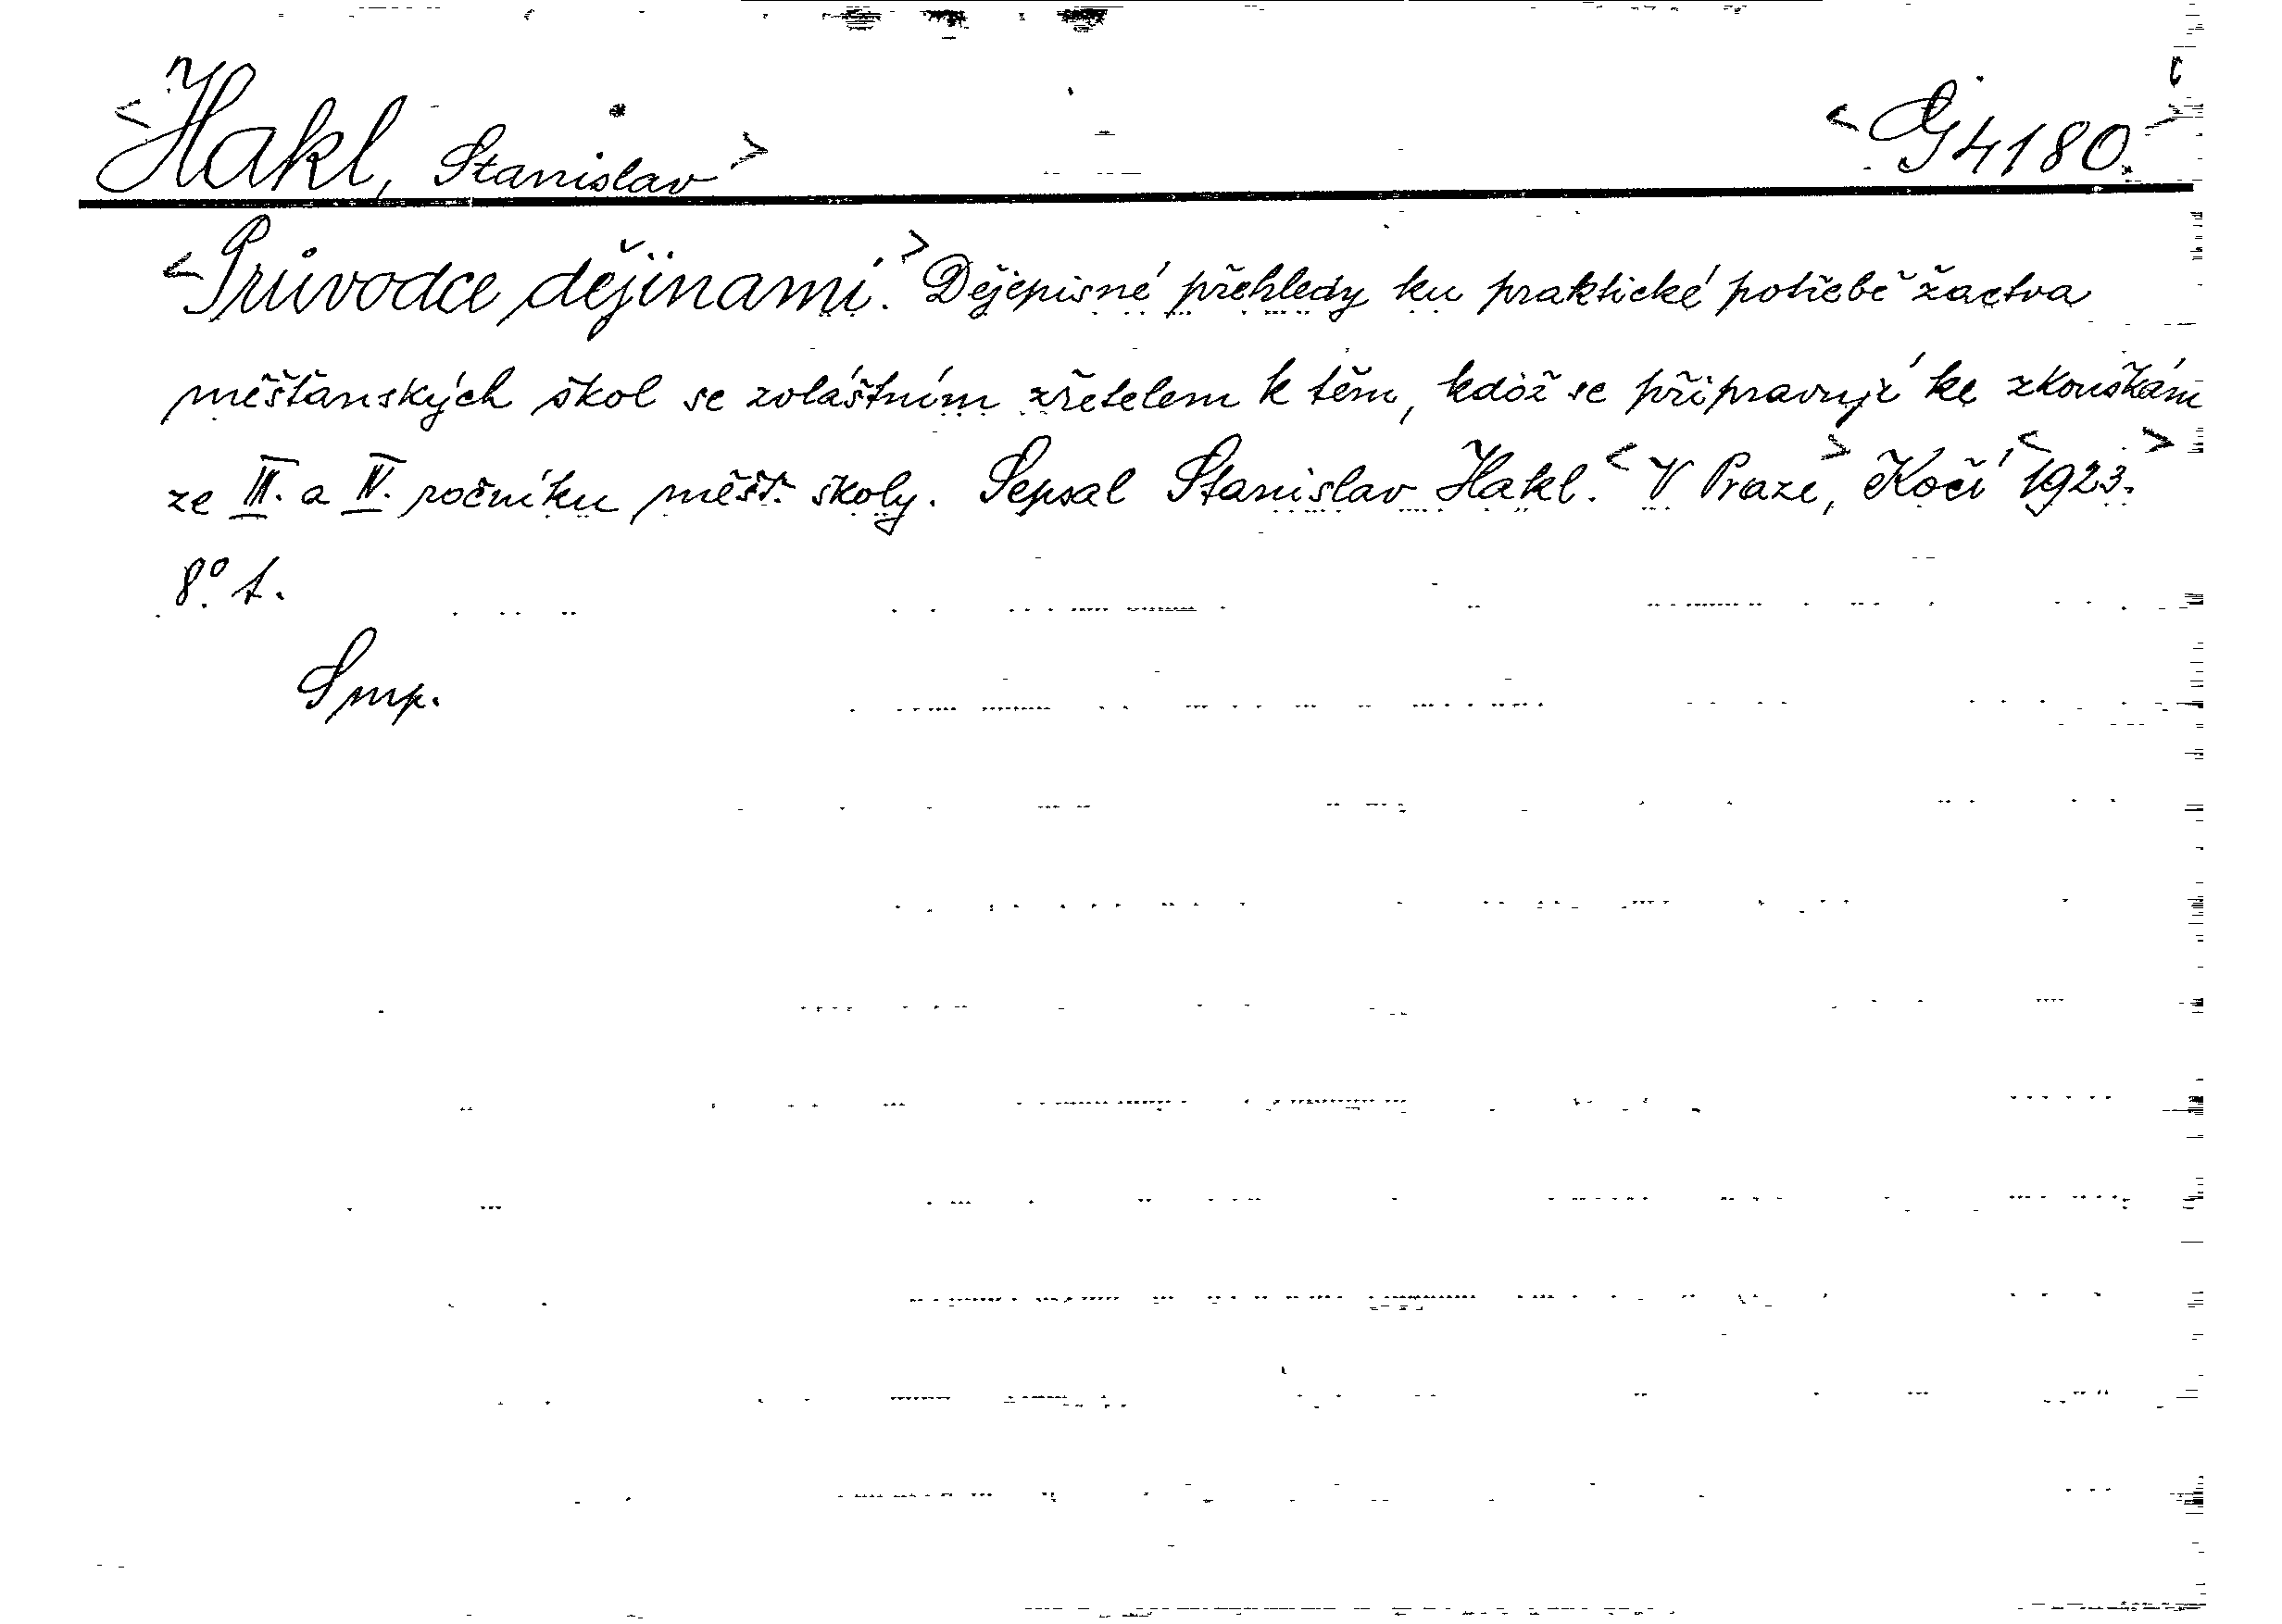 <Hakl, Stanislav> <G 4180.>
<Průvodce dějinami.> Dějepisné přehledy ku praktické potřebě žactva
měšťanských škol se zvláštním zřetelem k těm, kdož se připravují ke zkouškám
ze III. a IV. ročníku měšť. školy. Sepsal Stanislav Hakl. <V Praze>, Kočí <1923.>
8° t.
Smp.